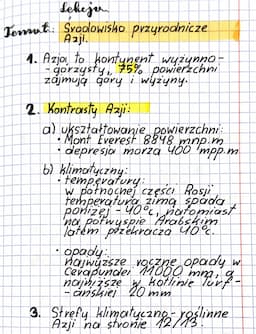 Lekcja
Temat: Środowisko przyrodnicze
Azji.
1. Azja to kontynent wyżynno-
-górzysty, 75% powierzchni
zajmują góry i wyżyny.
2. Kontrasty Azji:
a) ukształtowanie powierzchni:
• Mont Everest 8848 mnp.m
• depresja morza 400 mpp.m
b) klimatyczne:
• temperatury:
w północnej części Rosji
temperatura zimą spada
poniżej -40°C, natomiast
na półwyspie Arabskim
latem przekracza 40°C.
• opady:
najwyższe roczne opady w
Cerapundei 11000 mm, a
najniższe w kotlinie Turf-
-ańskiej 20mm
3. Strefy klimatyczno-roślinne
Azji na stronie 12/13.